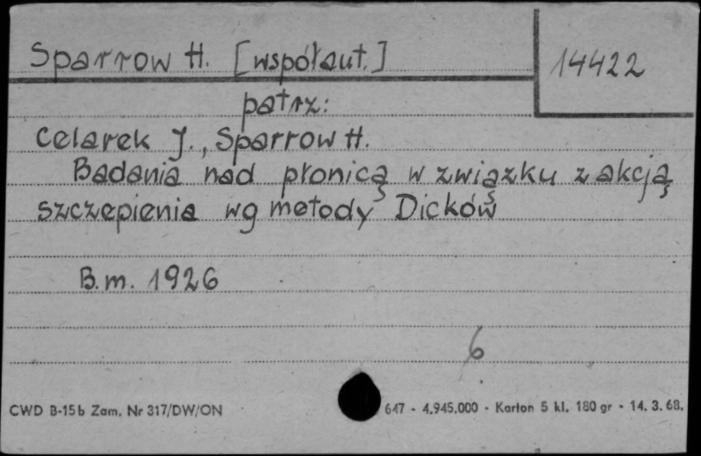 Sparrow H. [współaut.]
14422
patrz:
Celarek J., Sparrow H.
Badania nad płonicą w związku z akcją
szczepienia wg metody Dicków
B.m. 1926
6
CWD B-15b Zam. Nr 317/DW/ON 647 - 4.945.000 - Karton 5 kl. 180 gr - 14. 3. 68.